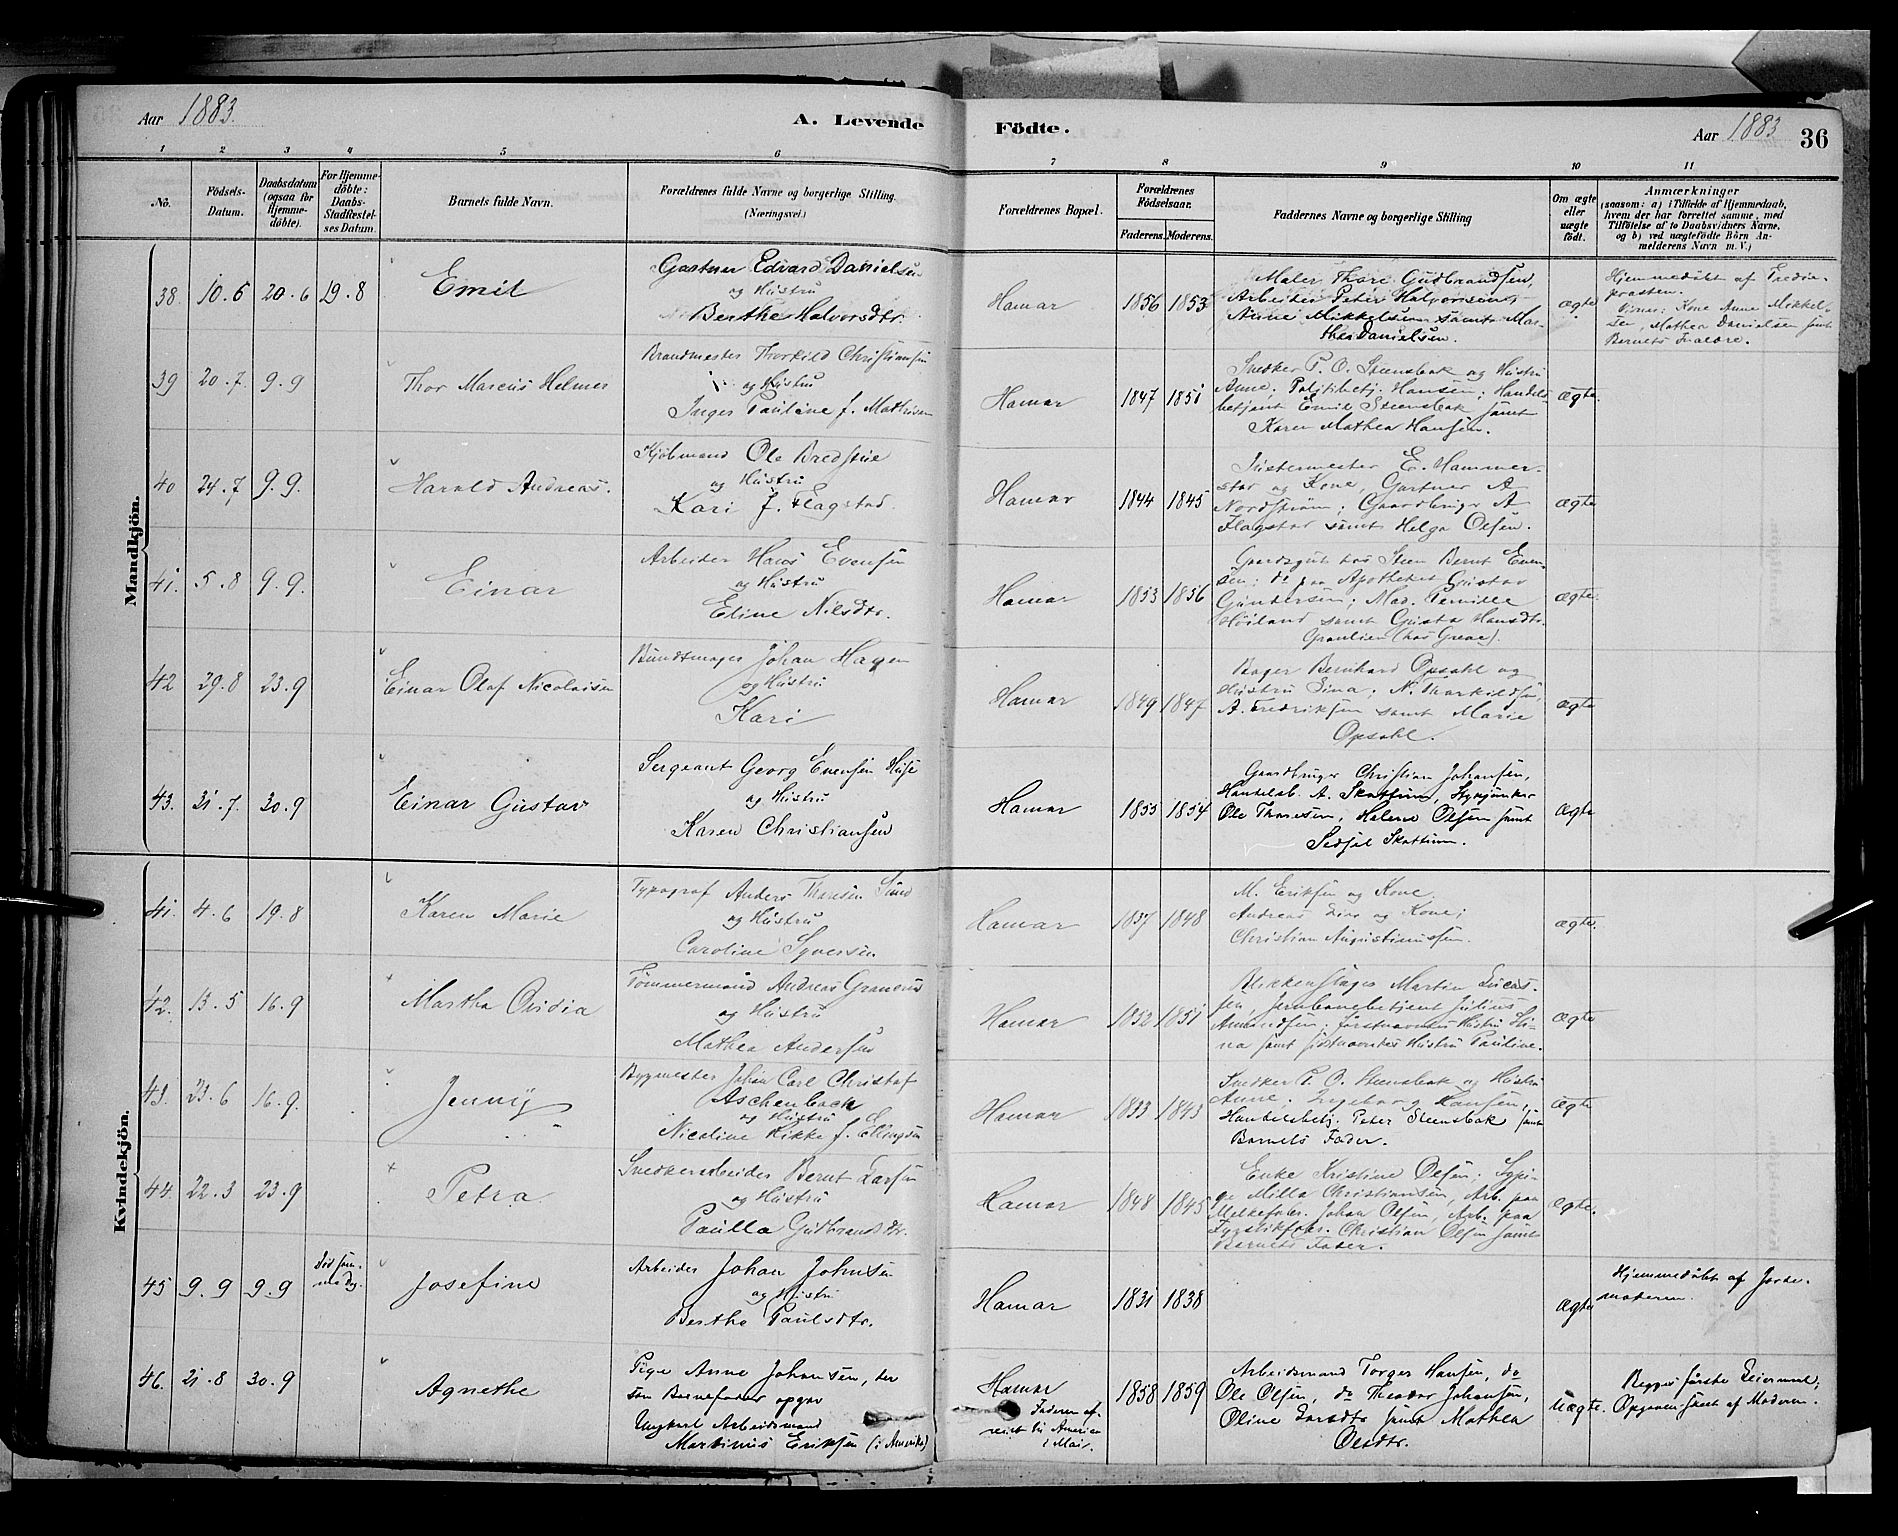 Aar 1883.
A. Levende
Födte.
Aar 1883
36
1 2 3 4 5 6 7 8 9 10 11
No.
Födsels-
Datum.
Daabsdatum
(ogsaa for
Hjemme-
döbte).
For Hjemme-
döbte:
Daabs-
Stadfæstel-
ses Datum.
Barnets fulde Navn.
Forældrenes fulde Navne og borgerlige Stilling.
(Næringsvei.)
Forældrenes Bopæl.
Forældrenes
Födselsaar.
Faderens.
Moderens.
Faddernes Navne og borgerlige Stilling
Om ægte
eller
uægte
født.
Anmærkninger
(saasom: a) i Tilfælde af Hjemmedaab,
hvem der har forrettet samme, med
Tilföielse af to Daabsvidners Navne,
og b) ved uægtefödte Börn An-
melderens Navn m. V.)
Mandkjön.
38. 10.6 20.6 19.8
Emil
Gartner Edvard Danielsen
og Hustru
Berthe Halvorsdtr.
Hamar
1856 1853
Maler Thore Gudbrandsen,
Arbeider Peter Halvorsen,
Anne Mikkelsen samt Mar-
thea Danielsen.
ægte
Hjemmedöbt af
Kone Anne Mikkel-
sen, Mathea Danielsen samt
Barnets Forældre.
39 20.7. 9.9
Thor Marcus Helmer
Brandmester Thorkild Christiansen
og Hustru
Inger Pauline f. Mathisen
Hamar
1847 1851
Snedker P. O. Steensbak og Hustru
Anne; Politibetj. Hansen; Handels-
betjent Emil Steensbak samt
Karen Mathea Hansen.
ægte
40 24.7 9.9.
Harald Andreas.
Kjöbmand Ole Bredstue
og Hustru
Kari f. Flagstad.
Hamar
1844 1845
E. Hammer-
stad og Kone, Gartner A
Nordström; Gaardbruger A
Flagstad samt Helga Olsen.
ægte
41. 5.8 9.9.
Einar
Arbeider Hans Evensen
og Hustru
Eline Nilsdtr.
Hamar
1853 1856
Gaardsgut hos Steen Bernt Even-
sen; do paa Apotheket Gustav
Gundersen; Mad. Pernille
Höiland samt Gusta Hansdtr.
Granlien (hos Greve).
ægte.
42 29.8 23.9
Einar Olaf Nicolaisen
Bundtmager Johan Hagen
og Hustru
Kari
Hamar
1849 1847
Bager Bernhard Opsahl og
Hustru Lina; N. Thorkildsen,
A. Fredriksen samt Marie
Opsahl.
ægte
43. 31.7. 30.9
Einar Gustav
Sergeant Georg Evensen Huse
og Hustru
Karen Christiansen
Hamar
1855 1854
Gaardbruger Christian Johansen,
Handelsb. A. Skattum, Stykjunker
Ole Thoresen, Helene Olsen samt
Sedsel Skattum.
ægte
Kvindekjön.
41. 4.6 19.8
Karen Marie
Typograf Anders Thoresen Sund
og Hustru
Caroline Syversen
Hamar
1857 1848
M. Eriksen og Kone
Andreas Lier og Kone;
Christian Augustinussen.
ægte.
42. 13.5 16.9
Martha Ovidia
Tömmermand Andreas Granerud
og Hustru
Mathea Andersen
Hamar
1852 1851
Blikkenslager Martin Lucas-
sen, Jernbanebetjent Julius
Amundsen; förstnævntes Hustru Sti-
na samt sidstnævntes Hustru Pauline.
ægte
43. 23.6 16.9.
Jenny
Bygmester Johan Carl Christof
Aschenbach
og Hustru
Nicoline Rikke f. Ellingsen
Hamar
1833 1843
Snedker P. O. Steensbak og Hustru
Anne, Ingeborg Hansen,
Handelsbetj. Peter Steensbak samt
Barnets Fader.
ægte
44. 22.3 23.9
Petra
Snedkerarbeider Bernt Larsen
og Hustru
Paulla Gudbrandsdtr.
Hamar
1848 1845
Enke Kristine Olsen; Sypi-
ge Milla Christiansen, Arb. paa
Melkefabr. Johan Olsen, Arb. paa
Fyrstikfabr. Christian Olsen samt
Barnets Fader.
ægte.
45 9.9 9.9
Död sam-
me Dag.
Josefine
Arbeider Johan Johnsen
og Hustru
Berthe Paulsdtr.
Hamar
1831 1838
ægte
Hjemmedöbt af Jorde-
moderen.
46. 21.8 30.9
Agnethe
Pige Anne Johansen, der
som Barnefader opgav
Ungkarl Arbeidsmand
Martinus Eriksen (i Amerika)
Hamar
Faderen af-
reist til Amerika
i Mai.
1858 1859
Arbeidsmand Torger Hansen, do
Ole Olsen, do Theodor Johansen,
Oline Larsdtr samt Mathea
Olsdtr.
uægte.
Begges förste Leiermaal;
Opgaven samt af Moderen.